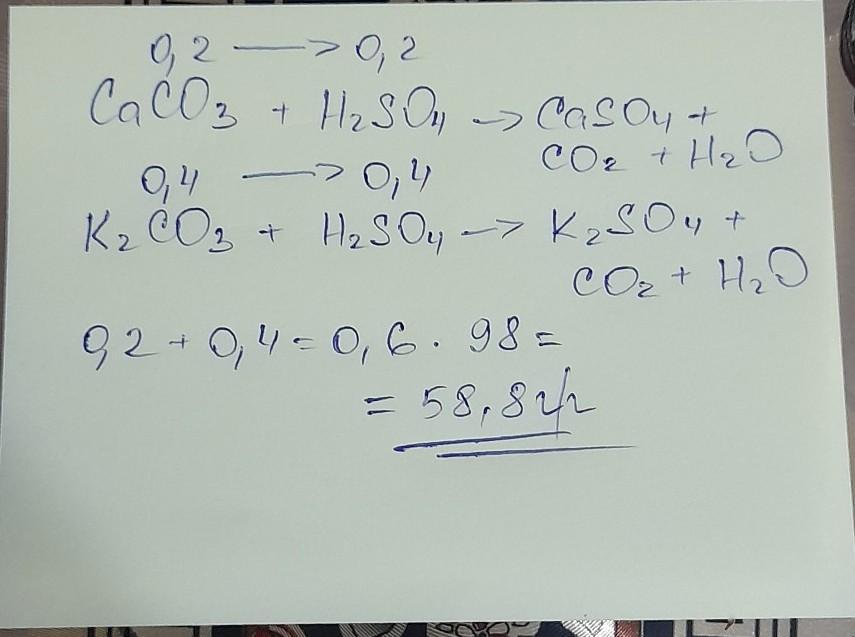 0,2 —> 0,2
CaCO3 + H2SO4 -> CaSO4 +
CO2 + H2O
0,4 —> 0,4
K2CO3 + H2SO4 -> K2SO4 +
CO2 + H2O
0,2 + 0,4 = 0,6 · 98 =
= 58,8